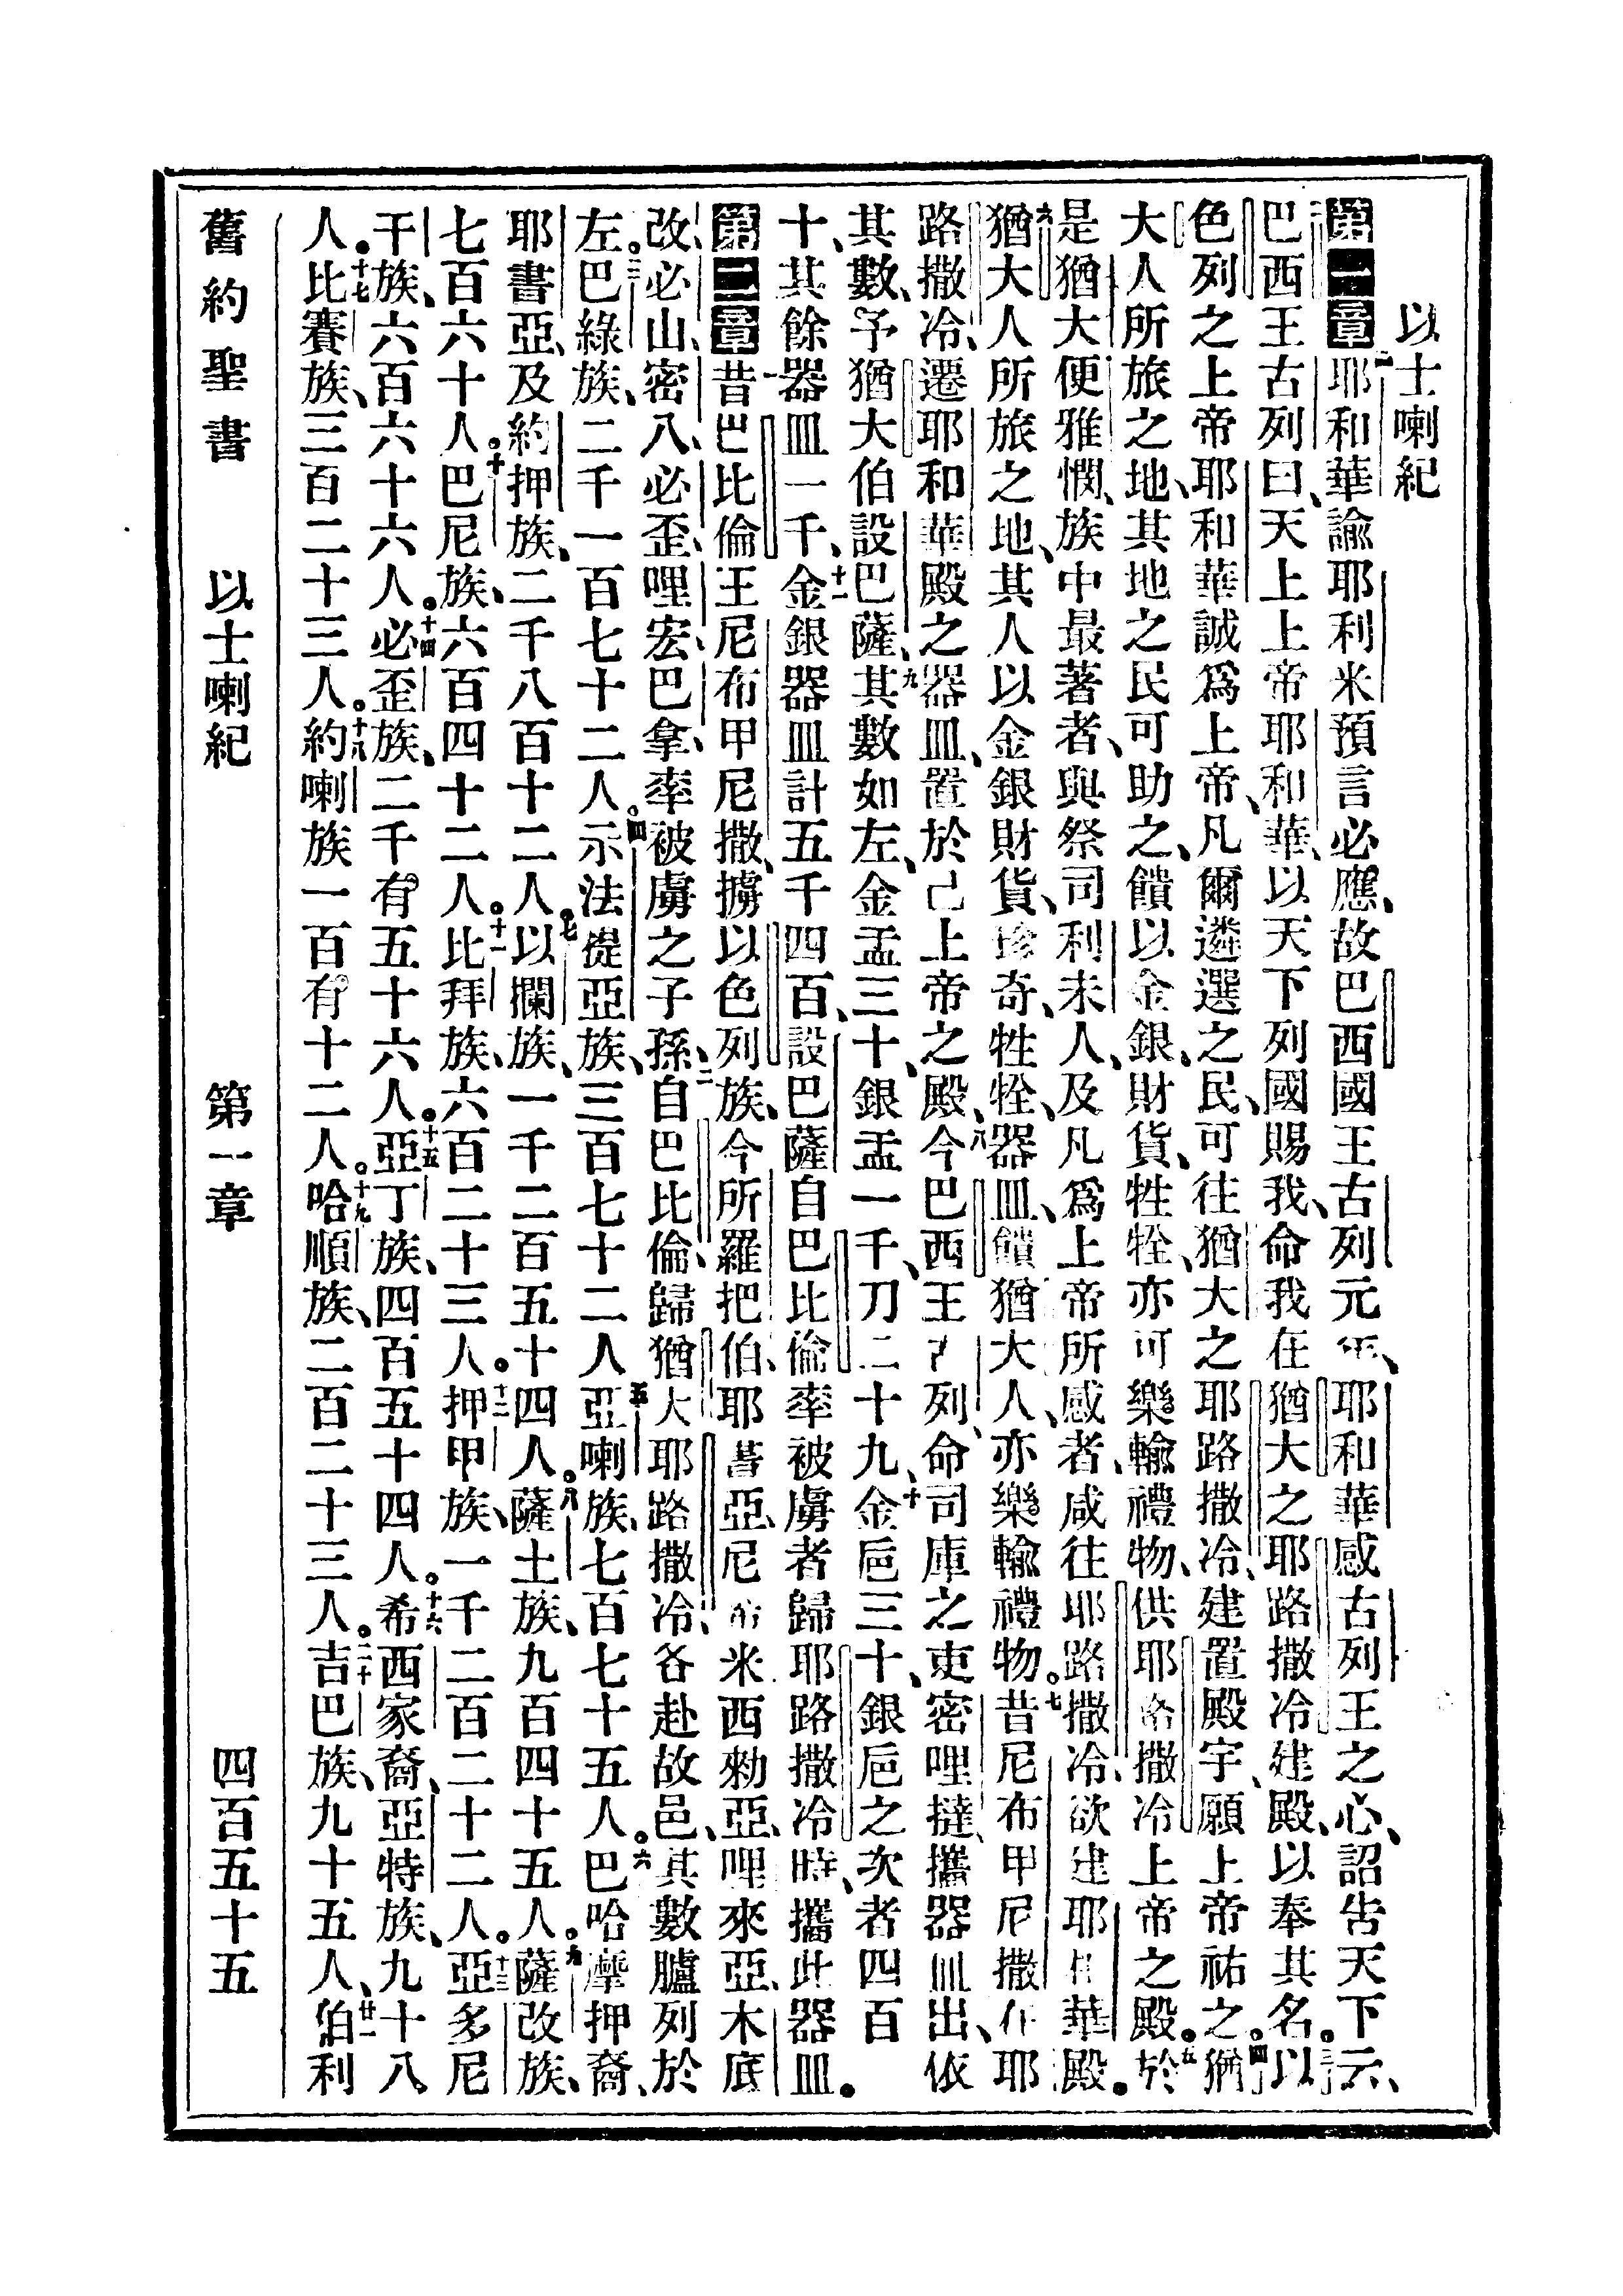 以士喇紀
第一章一耶和華諭耶利米預言必應、故巴西國王古列元年、耶和華感古列王之心、詔告天下云、
二巴西王古列曰、天上上帝耶和華、以天下列國賜我、命我在猶大之耶路撒冷建殿、以奉其名。三以
色列之上帝耶和華誠爲上帝、凡爾遴選之民、可往猶大之耶路撒冷、建置殿宇、願上帝祐之。四猶
大人所旅之地、其地之民可助之、饋以金銀、財貨、牲牷、亦可樂輸禮物、供耶路撒冷上帝之殿。五於
是猶大便雅憫、族中最著者、與祭司利未人、及凡爲上帝所感者、咸往耶路撒冷、欲建耶和華殿。
六猶大人所旅之地、其人以金銀財貨、珍奇、牲牷、器皿、饋猶大人、亦樂輸禮物。七昔尼布甲尼撒在耶
路撒冷、遷耶和華殿之器皿、置於己上帝之殿、八今巴西王古列、命司庫之吏密哩撻、攜器皿出、依
其數、予猶大伯設巴薩、九其數如左、金盂三十、銀盂一千、刀二十九、十金巵三十、銀巵之次者四百
十、其餘器皿一千、十一金銀器皿計五千四百、設巴薩自巴比倫率被虜者歸耶路撒冷時、攜此器皿。
第二章一昔巴比倫王尼布甲尼撒、擄以色列族、今所羅把伯、耶書亞、尼希米西勑亞、哩來亞、木底
改、必山、密八、必歪、哩宏、巴拿、率被虜之子孫、二自巴比倫、歸猶大耶路撒冷、各赴故邑、其數臚列於
左。三巴綠族、二千一百七十二人。四示法提亞族、三百七十二人五亞喇族、七百七十五人。六巴哈摩押裔、
耶書亞、及約押族、二千八百十二人。七以攔族、一千二百五十四人。八薩土族、九百四十五人。九薩改族、
七百六十人。十巴尼族、六百四十二人。十一比拜族、六百二十三人。十二押甲族、一千二百二十二人。十三亞多尼
干族、六百六十六人。十四必歪族、二千有五十六人。十五亞丁族、四百五十四人。十六希西家裔、亞特族、九十八
人。十七比賽族、三百二十三人。十八約喇族一百有十二人。十九哈順族、二百二十三人。二十吉巴族、九十五人、廿一伯利
舊約聖書　以士喇紀　第一章　四百五十五